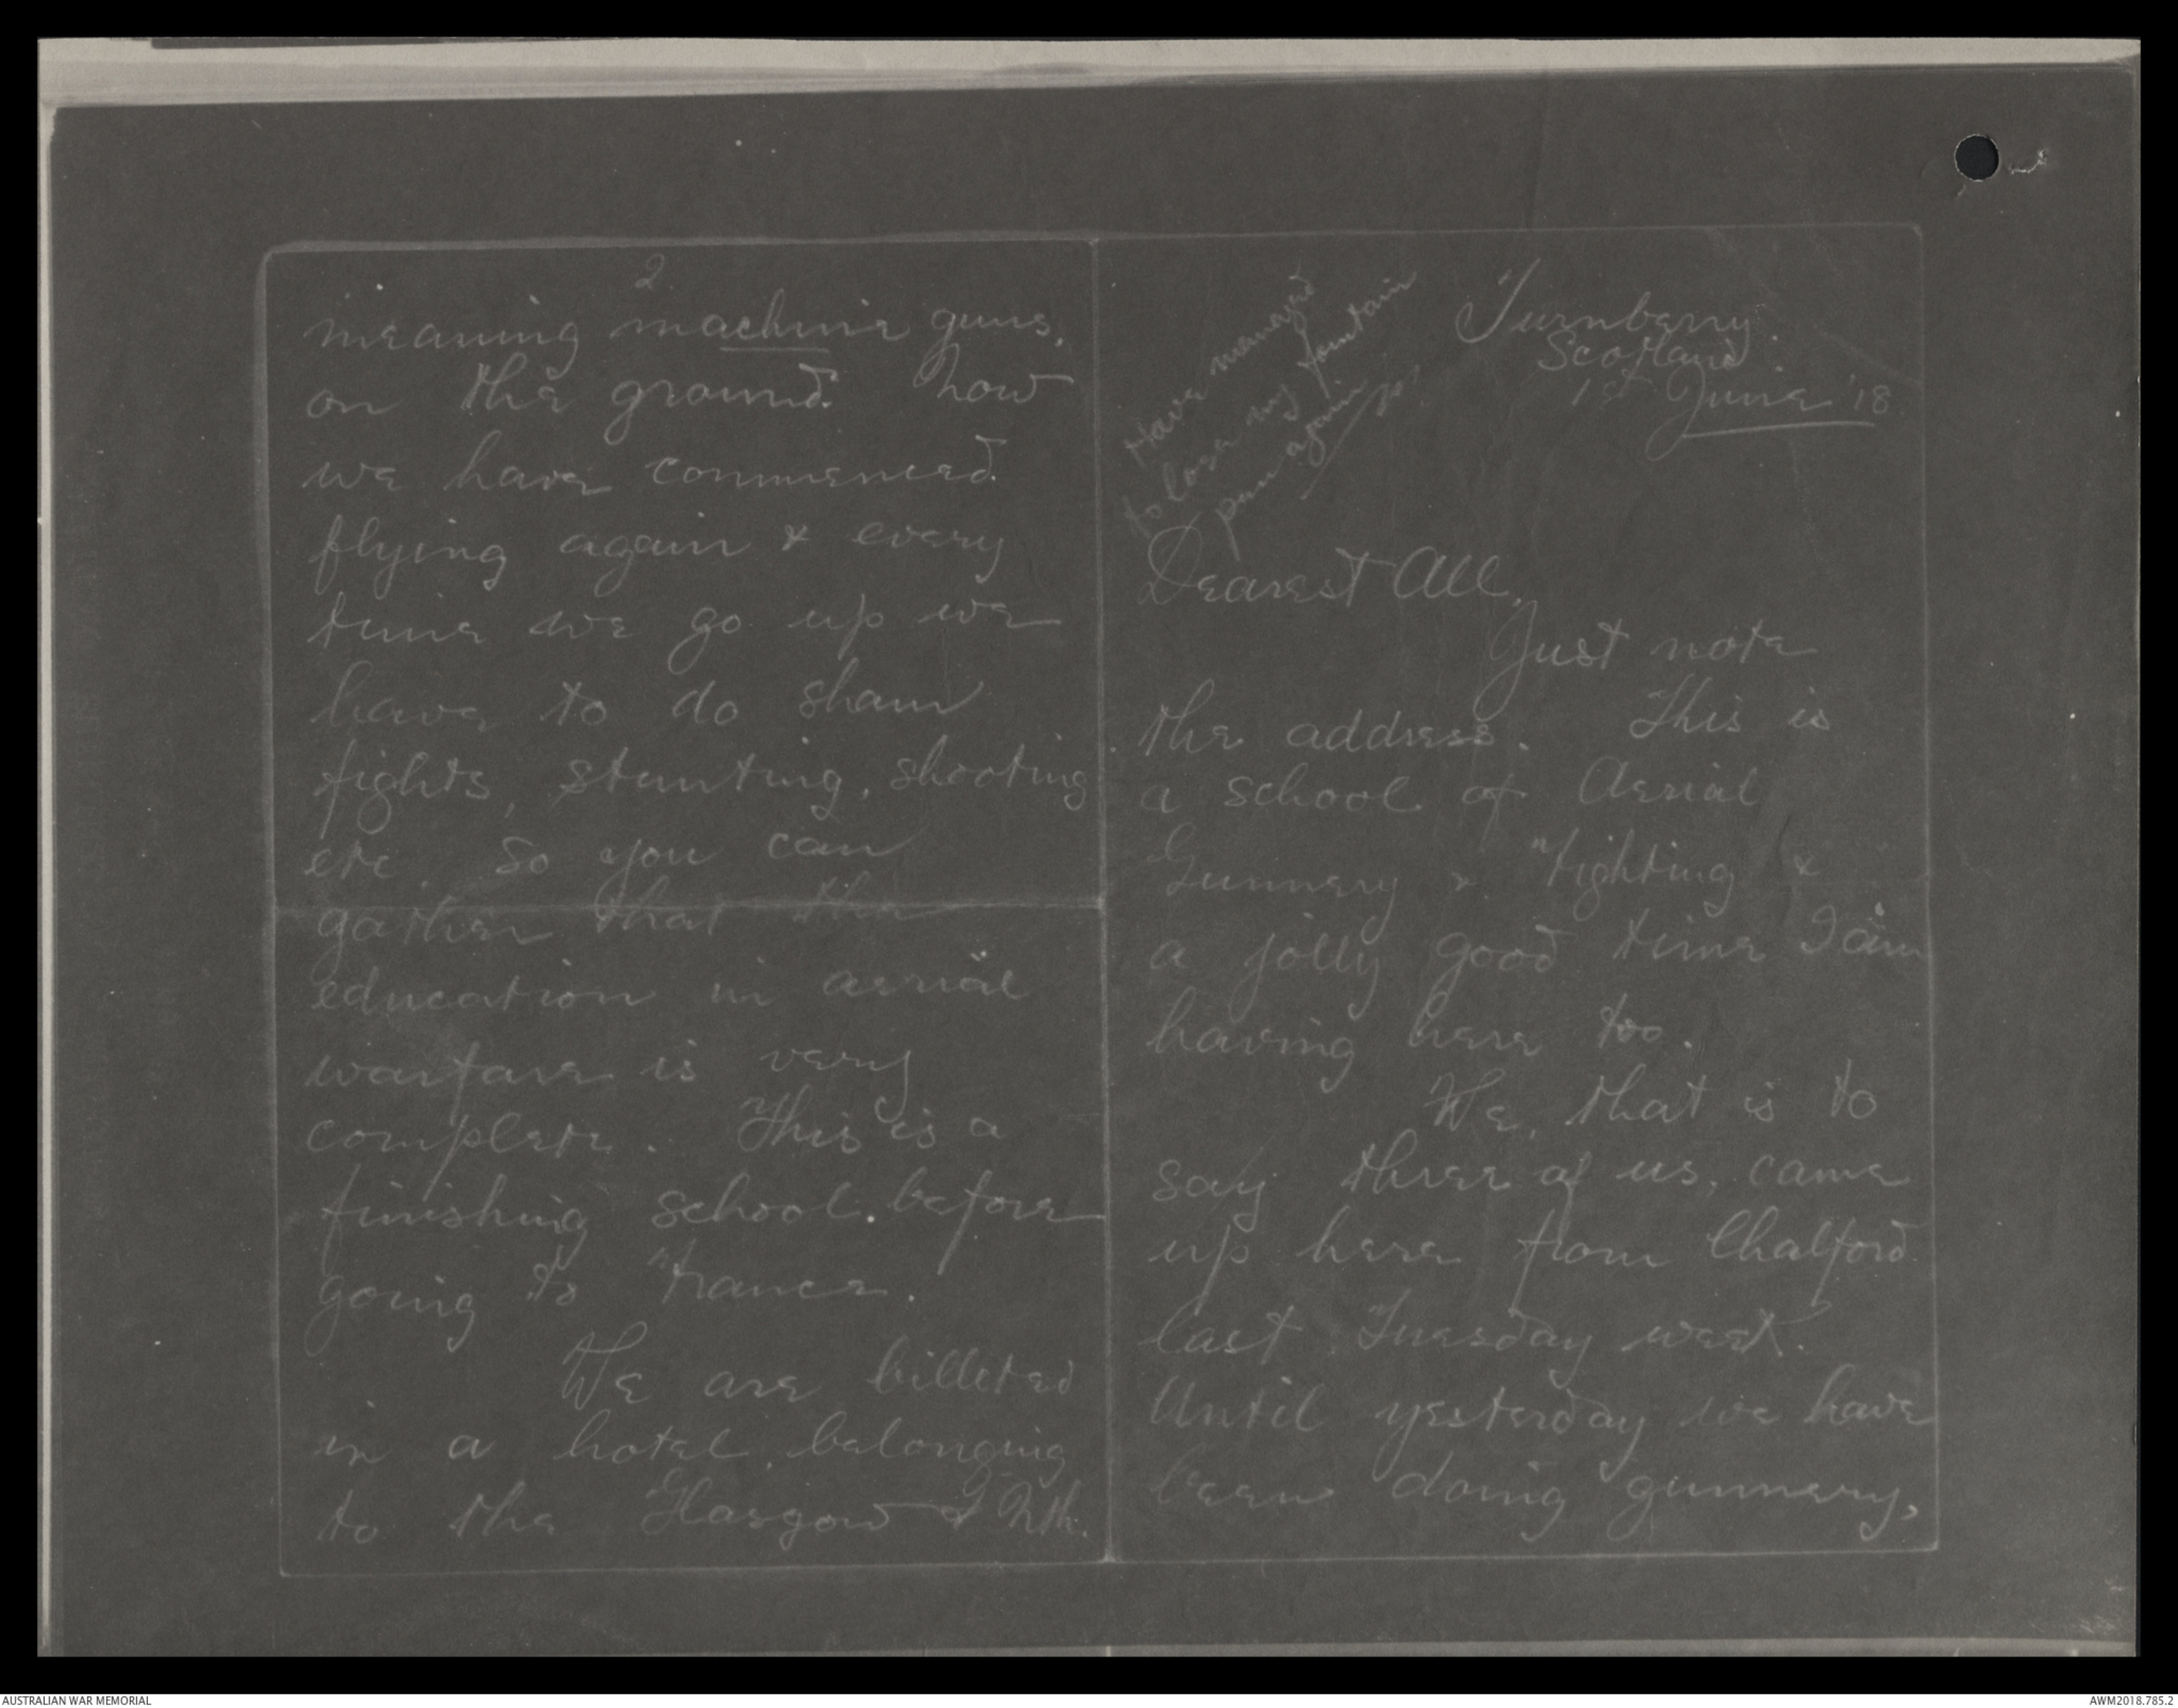 Turnberry
Scotland.
1st June '18
Have managed
to lose my fountain
pen again
Dearest All,
Just note
the address. This is
a school of Aerial
Gunnery & Fighting &
a jolly good time I am
having here too.
We, that is to
say three of us, came
up here from Chalford
last Tuesday week.
Until yesterday we have
been doing gunnery,
2
meaning machine guns,
on the ground. Now
we have commenced
flying again & every
time we go up we
have to do sham
fights, stunting, shooting
etc. So you can
gather that the
education in aerial
warfare is very
complete. This is a
finishing school before
going to France.
We are billeted
in a hotel, belonging
to the Glasgow &
AUSTRALIAN WAR MEMORIAL
AWM2018.785.2